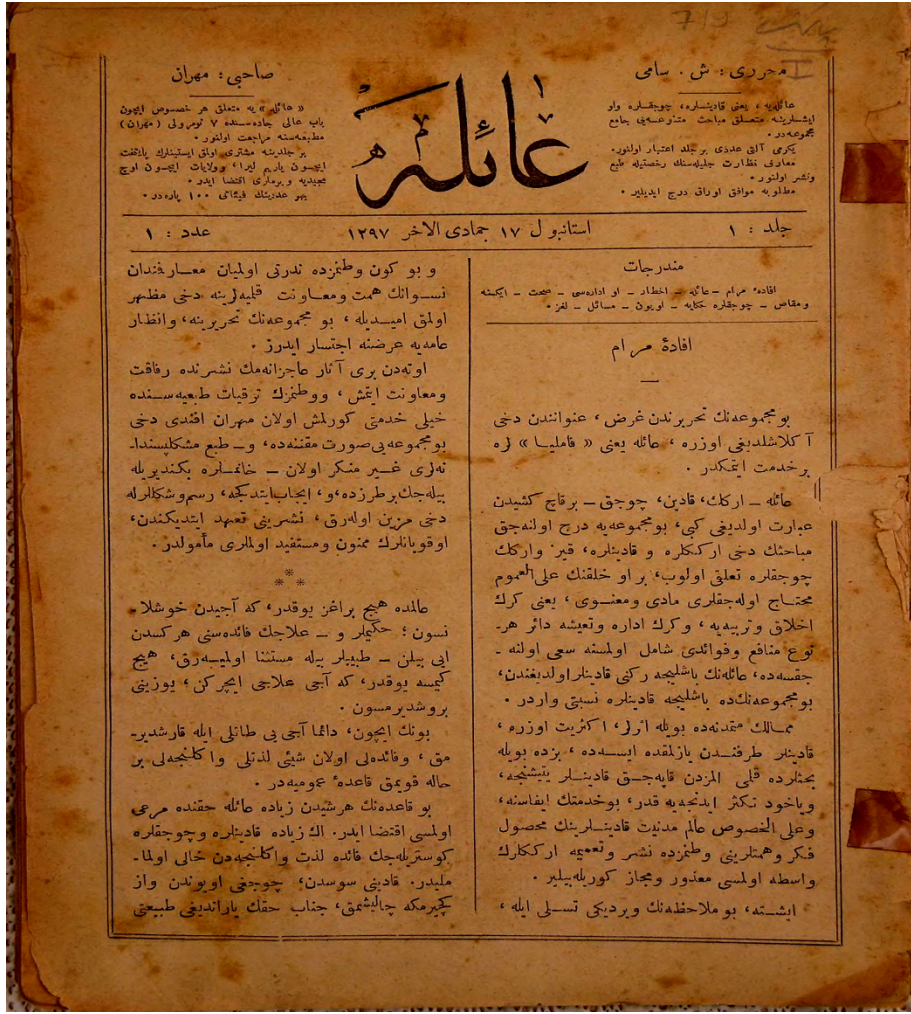 محررى : ش . سامى
عائله‌يه ، يعنى قادينلره ، چوجقلره واو
ايشلرينه متعلق مباحث متنوعه‌يى جامع
مجموعه‌در .
يكرمى آلتى عددى بر جلد اعتبار اولنور .
معارف نظارت جليله‌سنك رخصتيله طبع
ونشر اولنور .
مطلوبه موافق اوراق درج ايديلير .
عائله
صاحبى : مهران
« عائله » يه متعلق هر خصوص ايچون
باب عالى جاده‌سنده ٧ نومرولى ( مهران )
مطبعه‌سنه مراجعت اولنور .
بر جلدينه مشترى اولق ايستينلرك پايتخت
ايچون يارم ليرا ، وولايات ايچون اوچ
مجيديه ويرملرى اقتضا ايدر .
بهر عددينك فيئاتى ١٠٠ پاره‌در .
جلد : ١
استانبول ١٧ جمادى الاخر ١٢٩٧
عدد : ١
مندرجات
افادۀ مرام – عائله – اخطار – او اداره‌سى – صحت – ايكنه
ومقاص – چوجقلره حكايه – اويون – مسائل – لغز .
افادۀ مرام
بو مجموعه‌نك تحريرندن غرض ، عنوانندن دخى
آكلاشلديغى اوزره ، عائله يعنى « فاميليا » لره
بر خدمت ايتمكدر .
عائله – اركك ، قادين ، چوجق – بر قاچ كشيدن
عبارت اولديغى كبى ، بو مجموعه‌يه درج اولنه‌جق
مباحثك دخى اركـكلره و قادينلره ، قيز واركك
چوجقلره تعلق اولوب ، بر او خلقنك على العموم
محتاج اوله‌جقلرى مادى ومعنوى ، يعنى كرك
اخلاق وتربيه‌يه ، وكرك اداره وتعيشه دائر هر-
نوع منافع وفوائدى شامل اولمسنه سعى اولنه -
جقسه‌ده ، عائله‌نك باشليجه ركنى قادينلر اولديغندن ،
بو مجموعه‌نك‌ده باشليجه قادينلره نسبتى واردر .
ممالك متمدنه‌ده بويله اثرلر ، اكثريت اوزره ،
قادينلر طرفندن يازلمقده ايسه‌ده ، بزده بويله
بحثلرده قلمى المزدن قاپه‌جق قادينلر يتيشنجه ،
وياخود تكثر ايدنجه‌يه قدر ، بو خدمتك ايفاسنه ،
وعلى الخصوص عالم مدنيت قادينلرينك محصول
فكر وهمتلرينى وطنمزده نشر وتعميمه اركـكلرك
واسطه اولمسى معذور ومجاز كوريله‌بيلير .
ايشته ، بو ملاحظه‌نك ويرديكى تسلى ايله ،
و بو كون وطنمزده ندرتى اولميان معارفمندان
نسوانك همت ومعاونت قلميه‌لرينه دخى مظهر
اولمق اميديله ، بو مجموعه‌نك تحريرينه ، وانظار
عامه‌يه عرضنه اجتسار ايدرز .
اوته‌دن برى آثار عاجزانه‌مك نشرنده رفاقت
ومعاونت ايتمش ، ووطنمزك ترقيات طبعيه‌سنده
خيلى خدمتى كورلمش اولان مهران افندى دخى
بو مجموعه‌يى صورت مقننه‌ده ، و – طبع مشكلپسندا-
نه‌لرى غير منكر اولان – خانملره بكنديريله
بيله‌جك بر طرزده ، و ، ايجاب ايتدكجه ، رسم وشكللرله
دخى مزين اوله‌رق ، نشرينى تعهد ايتديكندن ،
اوقويانلرك ممنون ومستفيد اولملرى مأمولدر .
* * *
عالمده هيچ بر اغز يوقدر ، كه آجيدن خوشلا-
نسون ؛ حكيملر و – علاجك فائده‌سنى هر كسدن
ايى بيلن – طبيبلر بيله مستثنا اولميه‌رق ، هيچ
كيمسه يوقدر ، كه آجى علاجى ايچركن ، يوزينى
بروشديرمسون .
بونك ايچون ، دائما آجى يى طاتلى ايله قارشدير-
مق ، وفائده‌لى اولان شيئى لذتلى واكلنجه‌لى بر
حاله قويمق قاعدۀ عموميه‌در .
بو قاعده‌نك هر شيدن زياده عائله حقنده مرعى
اولمسى اقتضا ايدر . الك زياده قادينلره وچوجقلره
كوستريله‌جك فائده لذت واكلنجه‌دن خالى اولما-
مليدر . قادينى سوسدن ؛ چوجغى اويوندن واز
كچيرمكه چاليشمق ، جناب حقك ياراتديغى طبيعتى